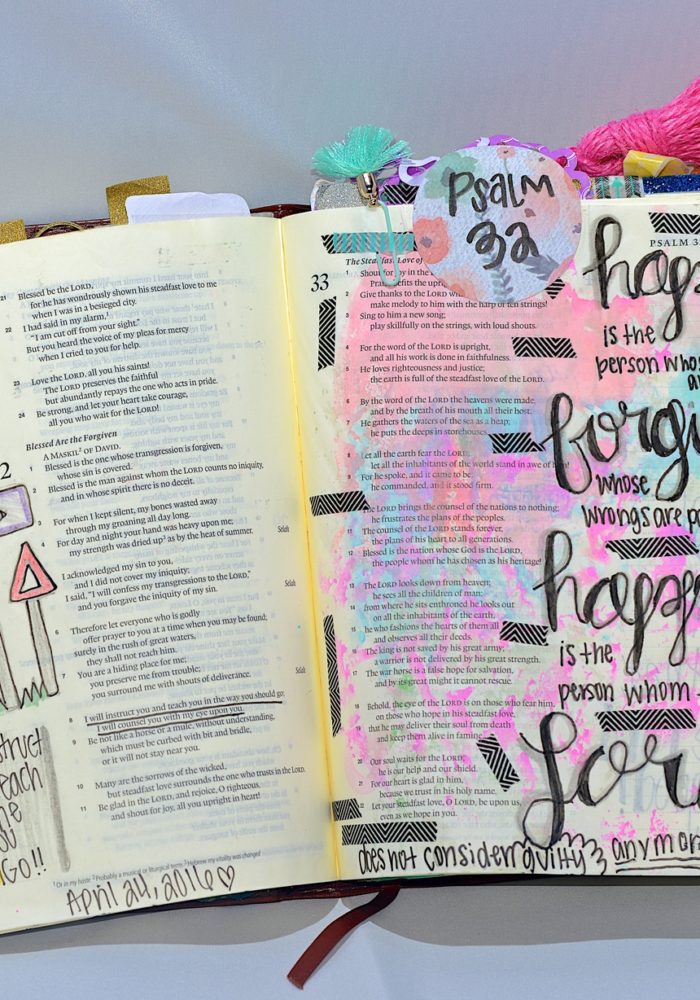 21 Blessed be the LORD,
for he has wondrously shown his steadfast love to me
when I was in a besieged city.
22 I had said in my alarm,¹
"I am cut off from your sight."
But you heard the voice of my pleas for mercy
when I cried to you for help.
23 Love the LORD, all you his saints!
The LORD preserves the faithful
but abundantly repays the one who acts in pride.
24 Be strong, and let your heart take courage,
all you who wait for the LORD!
Blessed Are the Forgiven
2
A MASKIL² OF DAVID.
1 Blessed is the one whose transgression is forgiven,
whose sin is covered.
2 Blessed is the man against whom the LORD counts no iniquity,
and in whose spirit there is no deceit.
3 For when I kept silent, my bones wasted away
through my groaning all day long.
4 For day and night your hand was heavy upon me;
my strength was dried up³ as by the heat of summer. Selah
5 I acknowledged my sin to you,
and I did not cover my iniquity;
I said, "I will confess my transgressions to the LORD,"
and you forgave the iniquity of my sin. Selah
6 Therefore let everyone who is godly
offer prayer to you at a time when you may be found;
surely in the rush of great waters,
they shall not reach him.
7 You are a hiding place for me;
you preserve me from trouble;
you surround me with shouts of deliverance. Selah
8 I will instruct you and teach you in the way you should go;
I will counsel you with my eye upon you.
9 Be not like a horse or a mule, without understanding,
which must be curbed with bit and bridle,
or it will not stay near you.
10 Many are the sorrows of the wicked,
but steadfast love surrounds the one who trusts in the LORD.
11 Be glad in the LORD, and rejoice, O righteous,
and shout for joy, all you upright in heart!
struct
each
GO!!
¹ Or in my haste ² Probably a musical or liturgical term ³ Hebrew my vitality was changed
April 24, 2016
Psalm
32
PSALM 3
The Steadfast Love of
33
1 Shout for joy in the
Praise befits the upri
2 Give thanks to the LORD with
make melody to him with the harp of ten strings!
3 Sing to him a new song;
play skillfully on the strings, with loud shouts.
4 For the word of the LORD is upright,
and all his work is done in faithfulness.
5 He loves righteousness and justice;
the earth is full of the steadfast love of the LORD.
6 By the word of the LORD the heavens were made,
and by the breath of his mouth all their host.
7 He gathers the waters of the sea as a heap;
he puts the deeps in storehouses.
8 Let all the earth fear the LORD;
let all the inhabitants of the world stand in awe of him!
9 For he spoke, and it came to be;
he commanded, and it stood firm.
The LORD brings the counsel of the nations to nothing;
he frustrates the plans of the peoples.
11 The counsel of the LORD stands forever,
the plans of his heart to all generations.
12 Blessed is the nation whose God is the LORD,
the people whom he has chosen as his heritage!
13 The LORD looks down from heaven;
he sees all the children of man;
14 from where he sits enthroned he looks out
on all the inhabitants of the earth,
he who fashions the hearts of them all
and observes all their deeds.
16 The king is not saved by his great army;
a warrior is not delivered by his great strength.
17 The war horse is a false hope for salvation,
and by its great might it cannot rescue.
18 Behold, the eye of the LORD is on those who fear him,
on those who hope in his steadfast love,
19 that he may deliver their soul from death
and keep them alive in famine.
20 Our soul waits for the LORD;
he is our help and our shield.
21 For our heart is glad in him,
because we trust in his holy name.
22 Let your steadfast love, O LORD, be upon us,
even as we hope in you.
happ
is the
person whos
forgi
whose
wrongs are p
happy
is the
person whom
Lor
does not consider guilty anymor